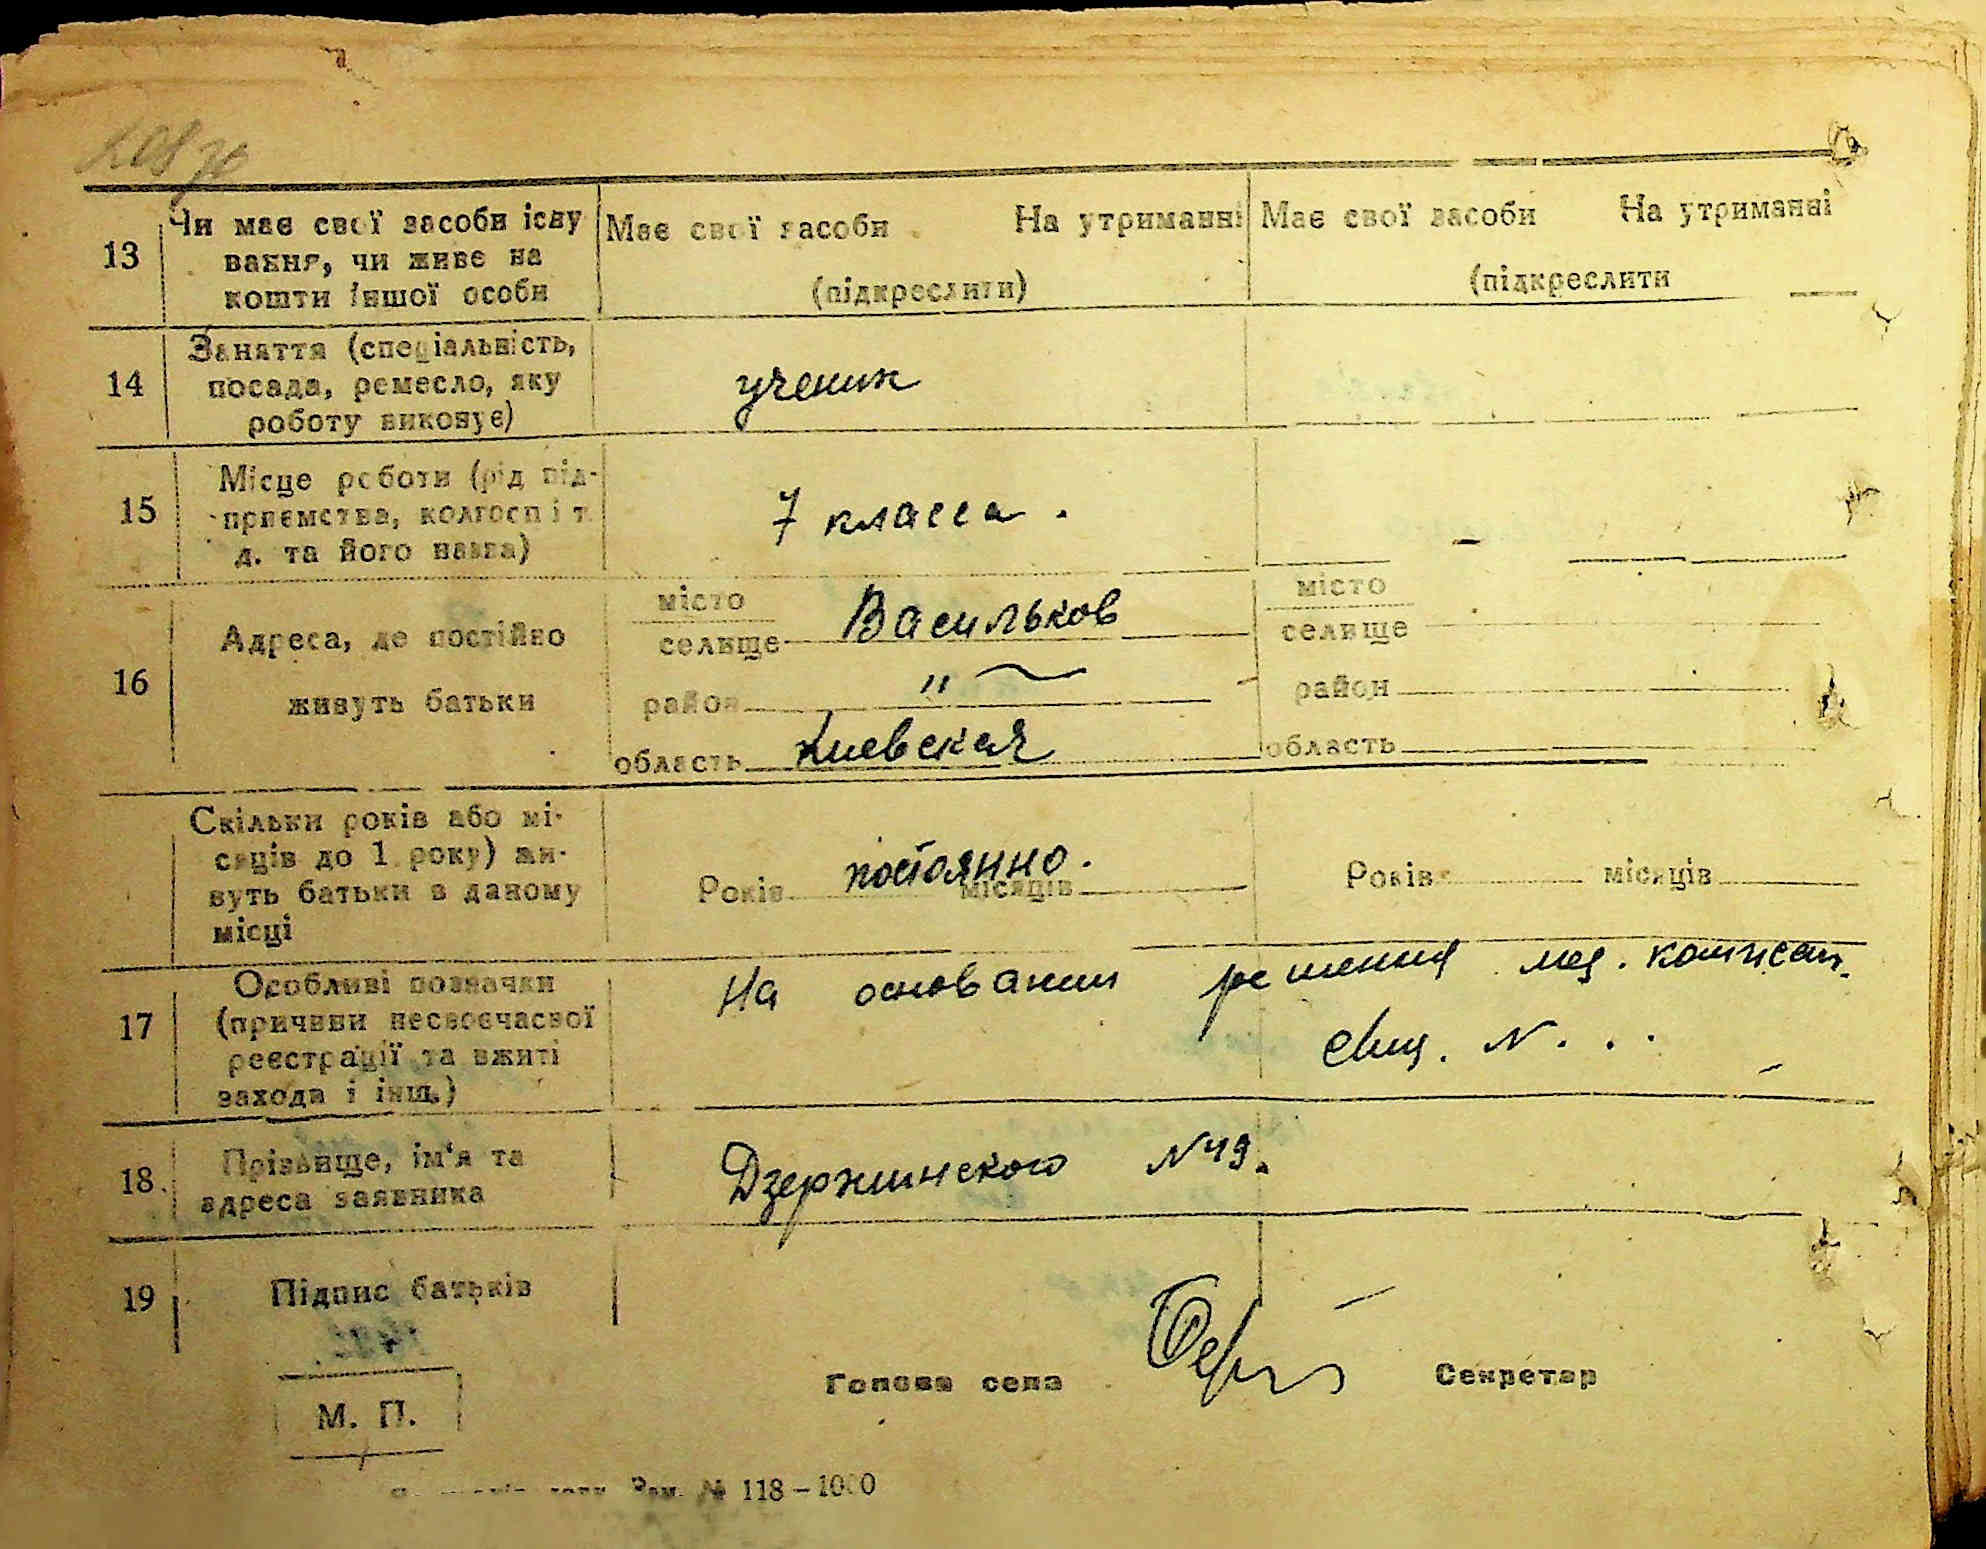 13 Чи має свої засоби існу
вання, чи живе на
кошти іншої особи
Має свої засоби На утриманні
(підкреслити)
Має свої засоби На утриманні
(підкреслити
14 Заняття (спеціальність,
посада, ремесло, яку
роботу виконує)
ученик
15 Місце роботи (рід під-
приємства, колгосп і т.
д. та його назва)
7 класса.
16 Адреса, де постійно
живуть батьки
місто
селище Васильков
район " ~
область Киевская
місто
селище
район
область
Скільки років або мі-
сяців до 1 року) жи-
вуть батьки в даному
місці
Років постоянно. місяців
Років місяців
17 Особливі позначки
(причини несвоєчасної
реєстрації та вжиті
заходи і інш.)
На основании решения мед. комисси.
свид. N. . .
18. Прізвище, ім'я та
адреса заявника
Дзержинского N 49.
19 Підпис батьків
Голова села Секретар
М. П.
Зам. № 118 – 1000